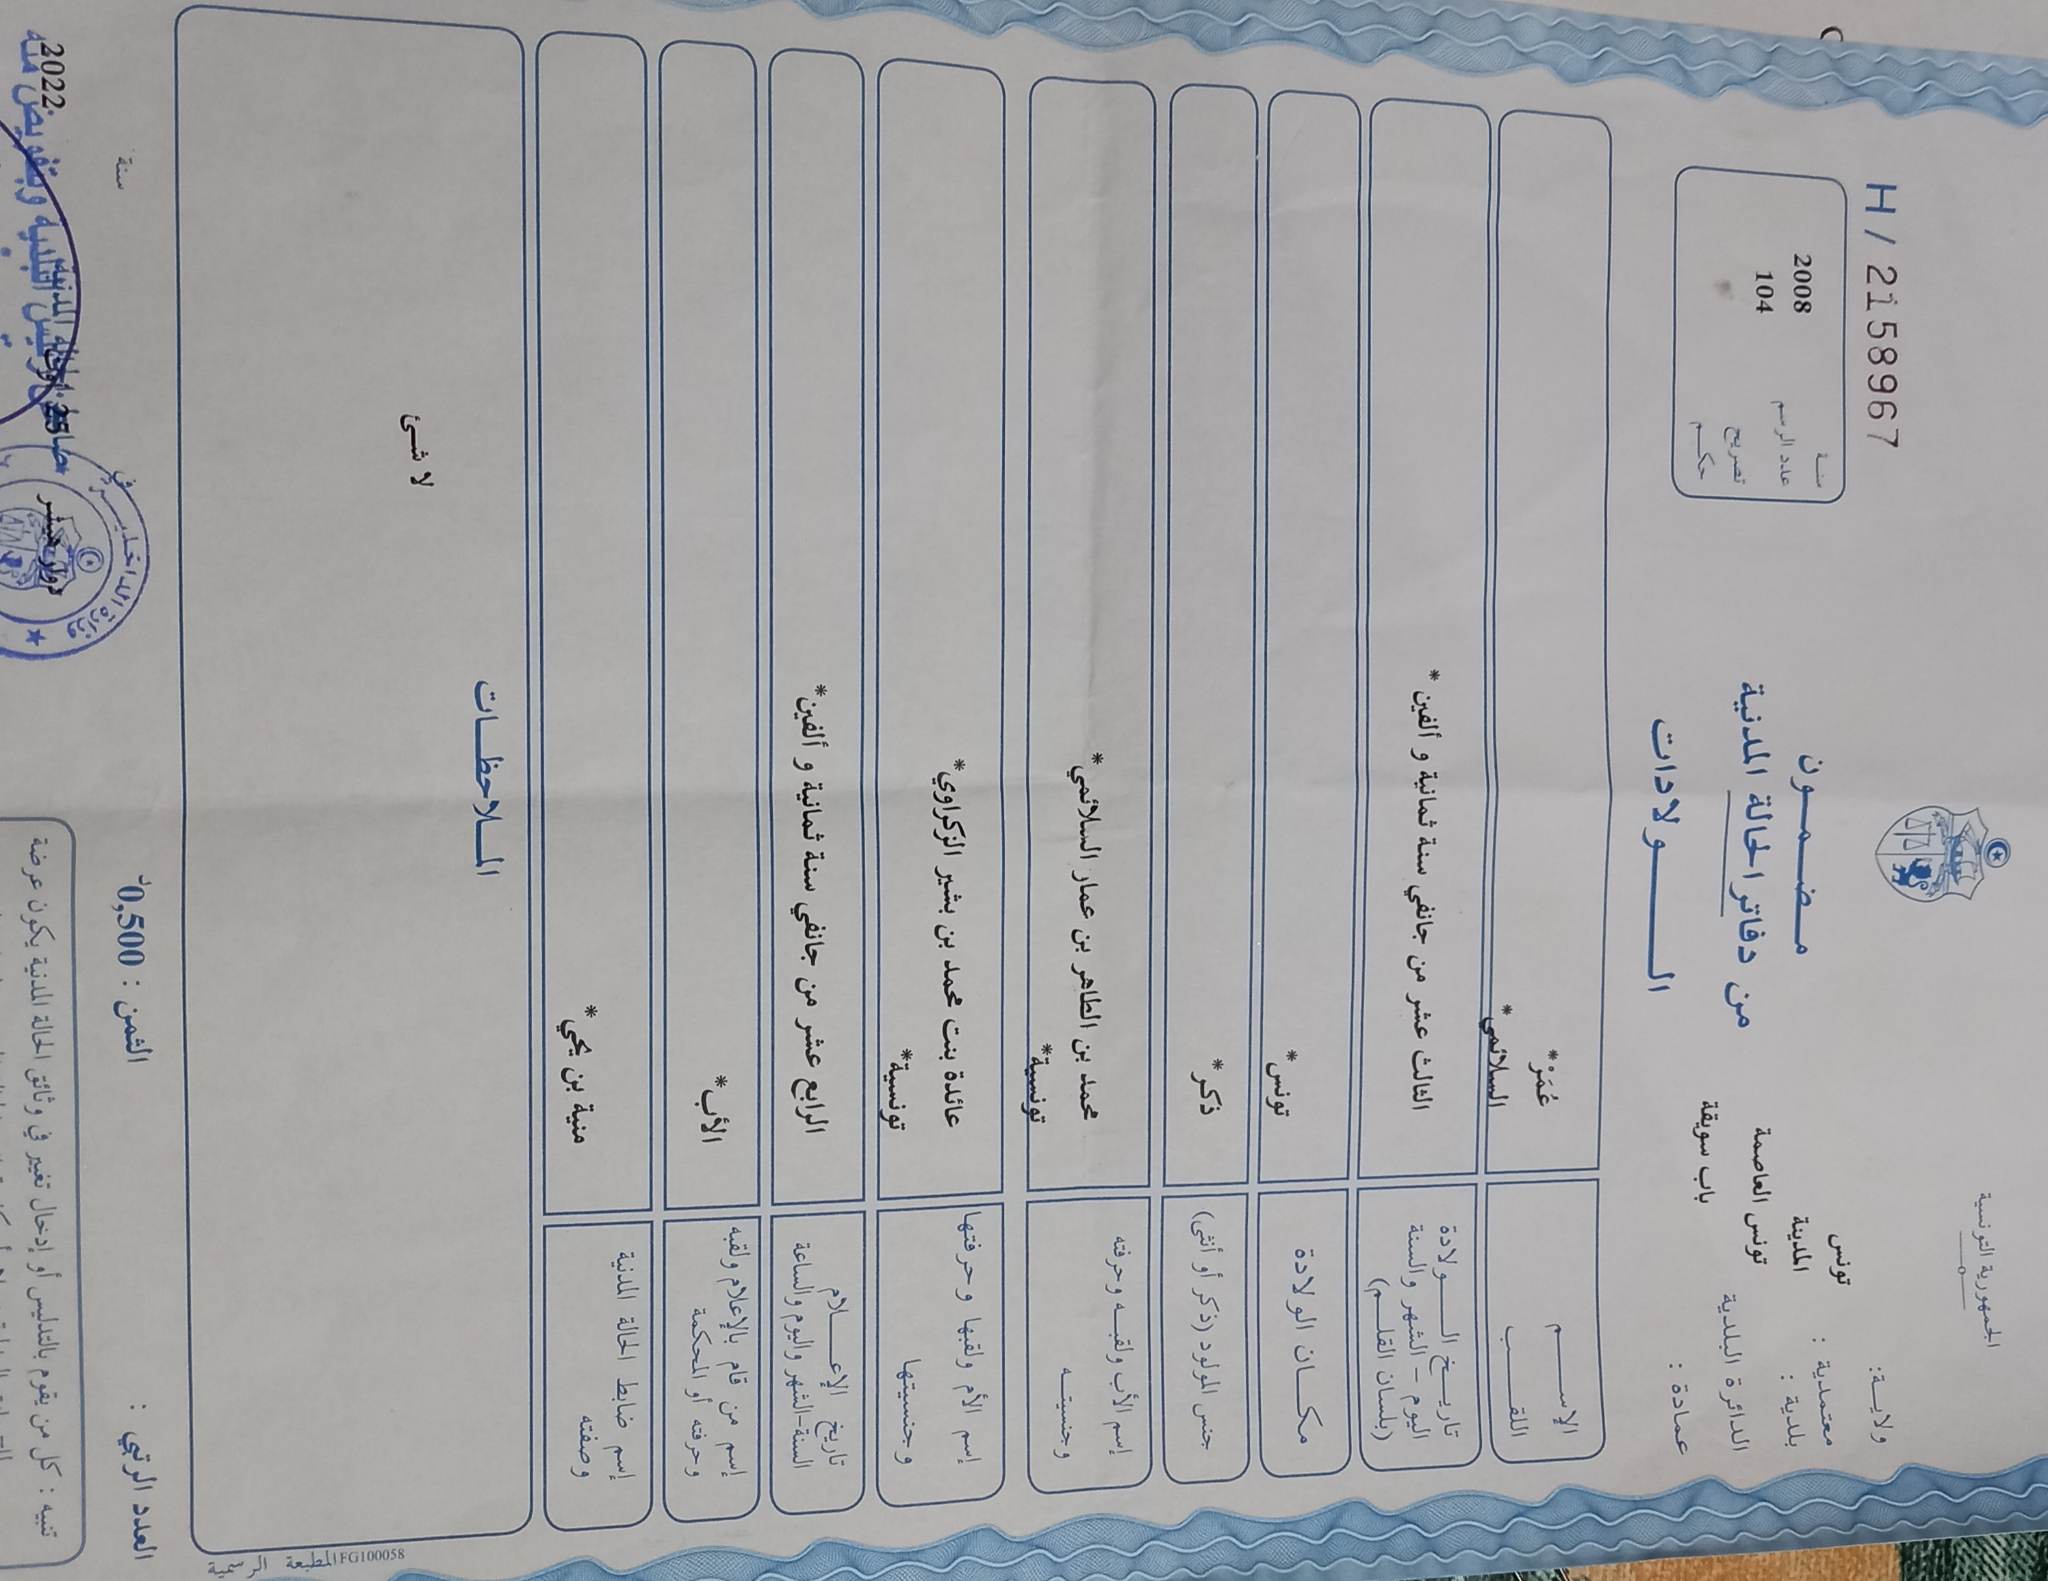 الجمهورية التونسية
ولاية: تونس
معتمدية : المدينة
بلدية : تونس العاصمة
الدائرة البلدية باب سويقة
عمادة :
مضمون
من دفاتر الحالة المدنية
الولادات
H / 2158967
سنة 2008
عدد الرسم 104
تصريح
حكم
الإسم عُمَرْ*
اللقب السلائمي*
تاريخ الولادة
اليوم - الشهر والسنة
(بلسان القلم)
الثالث عشر من جانفي سنة ثمانية و ألفين*
مكان الولادة تونس*
جنس المولود (ذكر أو أنثى) ذكر*
إسم الأب ولقبه وحرفته محمد بن الطاهر بن عمار السلائمي*
وجنسيته تونسية*
إسم الأم ولقبها وحرفتها عائدة بنت محمد بن بشير الزكراوي*
وجنسيتها تونسية*
تاريخ الإعلام
السنة-الشهر واليوم والساعة
الرابع عشر من جانفي سنة ثمانية و ألفين*
إسم من قام بالإعلام ولقبه
وحرفته أو المحكمة
الأب*
إسم ضابط الحالة المدنية
وصفته
منية بن يحيي*
الملاحظات
لا شئ
FG100058 المطبعة الرسمية
العدد الرتبي :
الثمن : 0,500د
في
سنة
2022
وزارة الداخلية
تنبيه : كل من يقوم بالتدليس أو إدخال تغيير في وثائق الحالة المدنية يكون عرضة